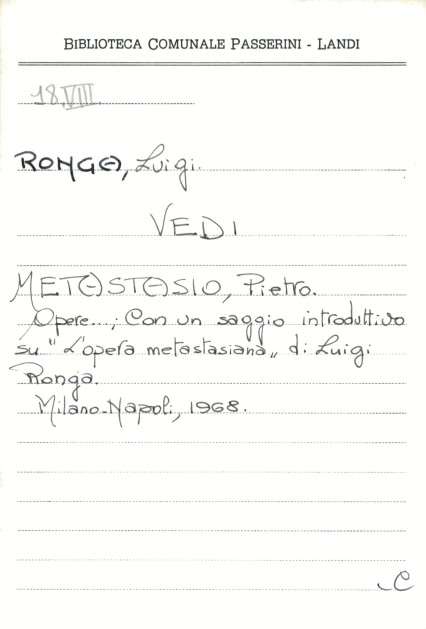 BIBLIOTECA COMUNALE PASSERINI - LANDI
18.VIII.
RONGA, Luigi.
VEDI
METASTASIO, Pietro.
Opere...; Con un saggio introduttivo
su "L'opera metastasiana„ di Luigi
Ronga.
Milano-Napoli, 1968.
C